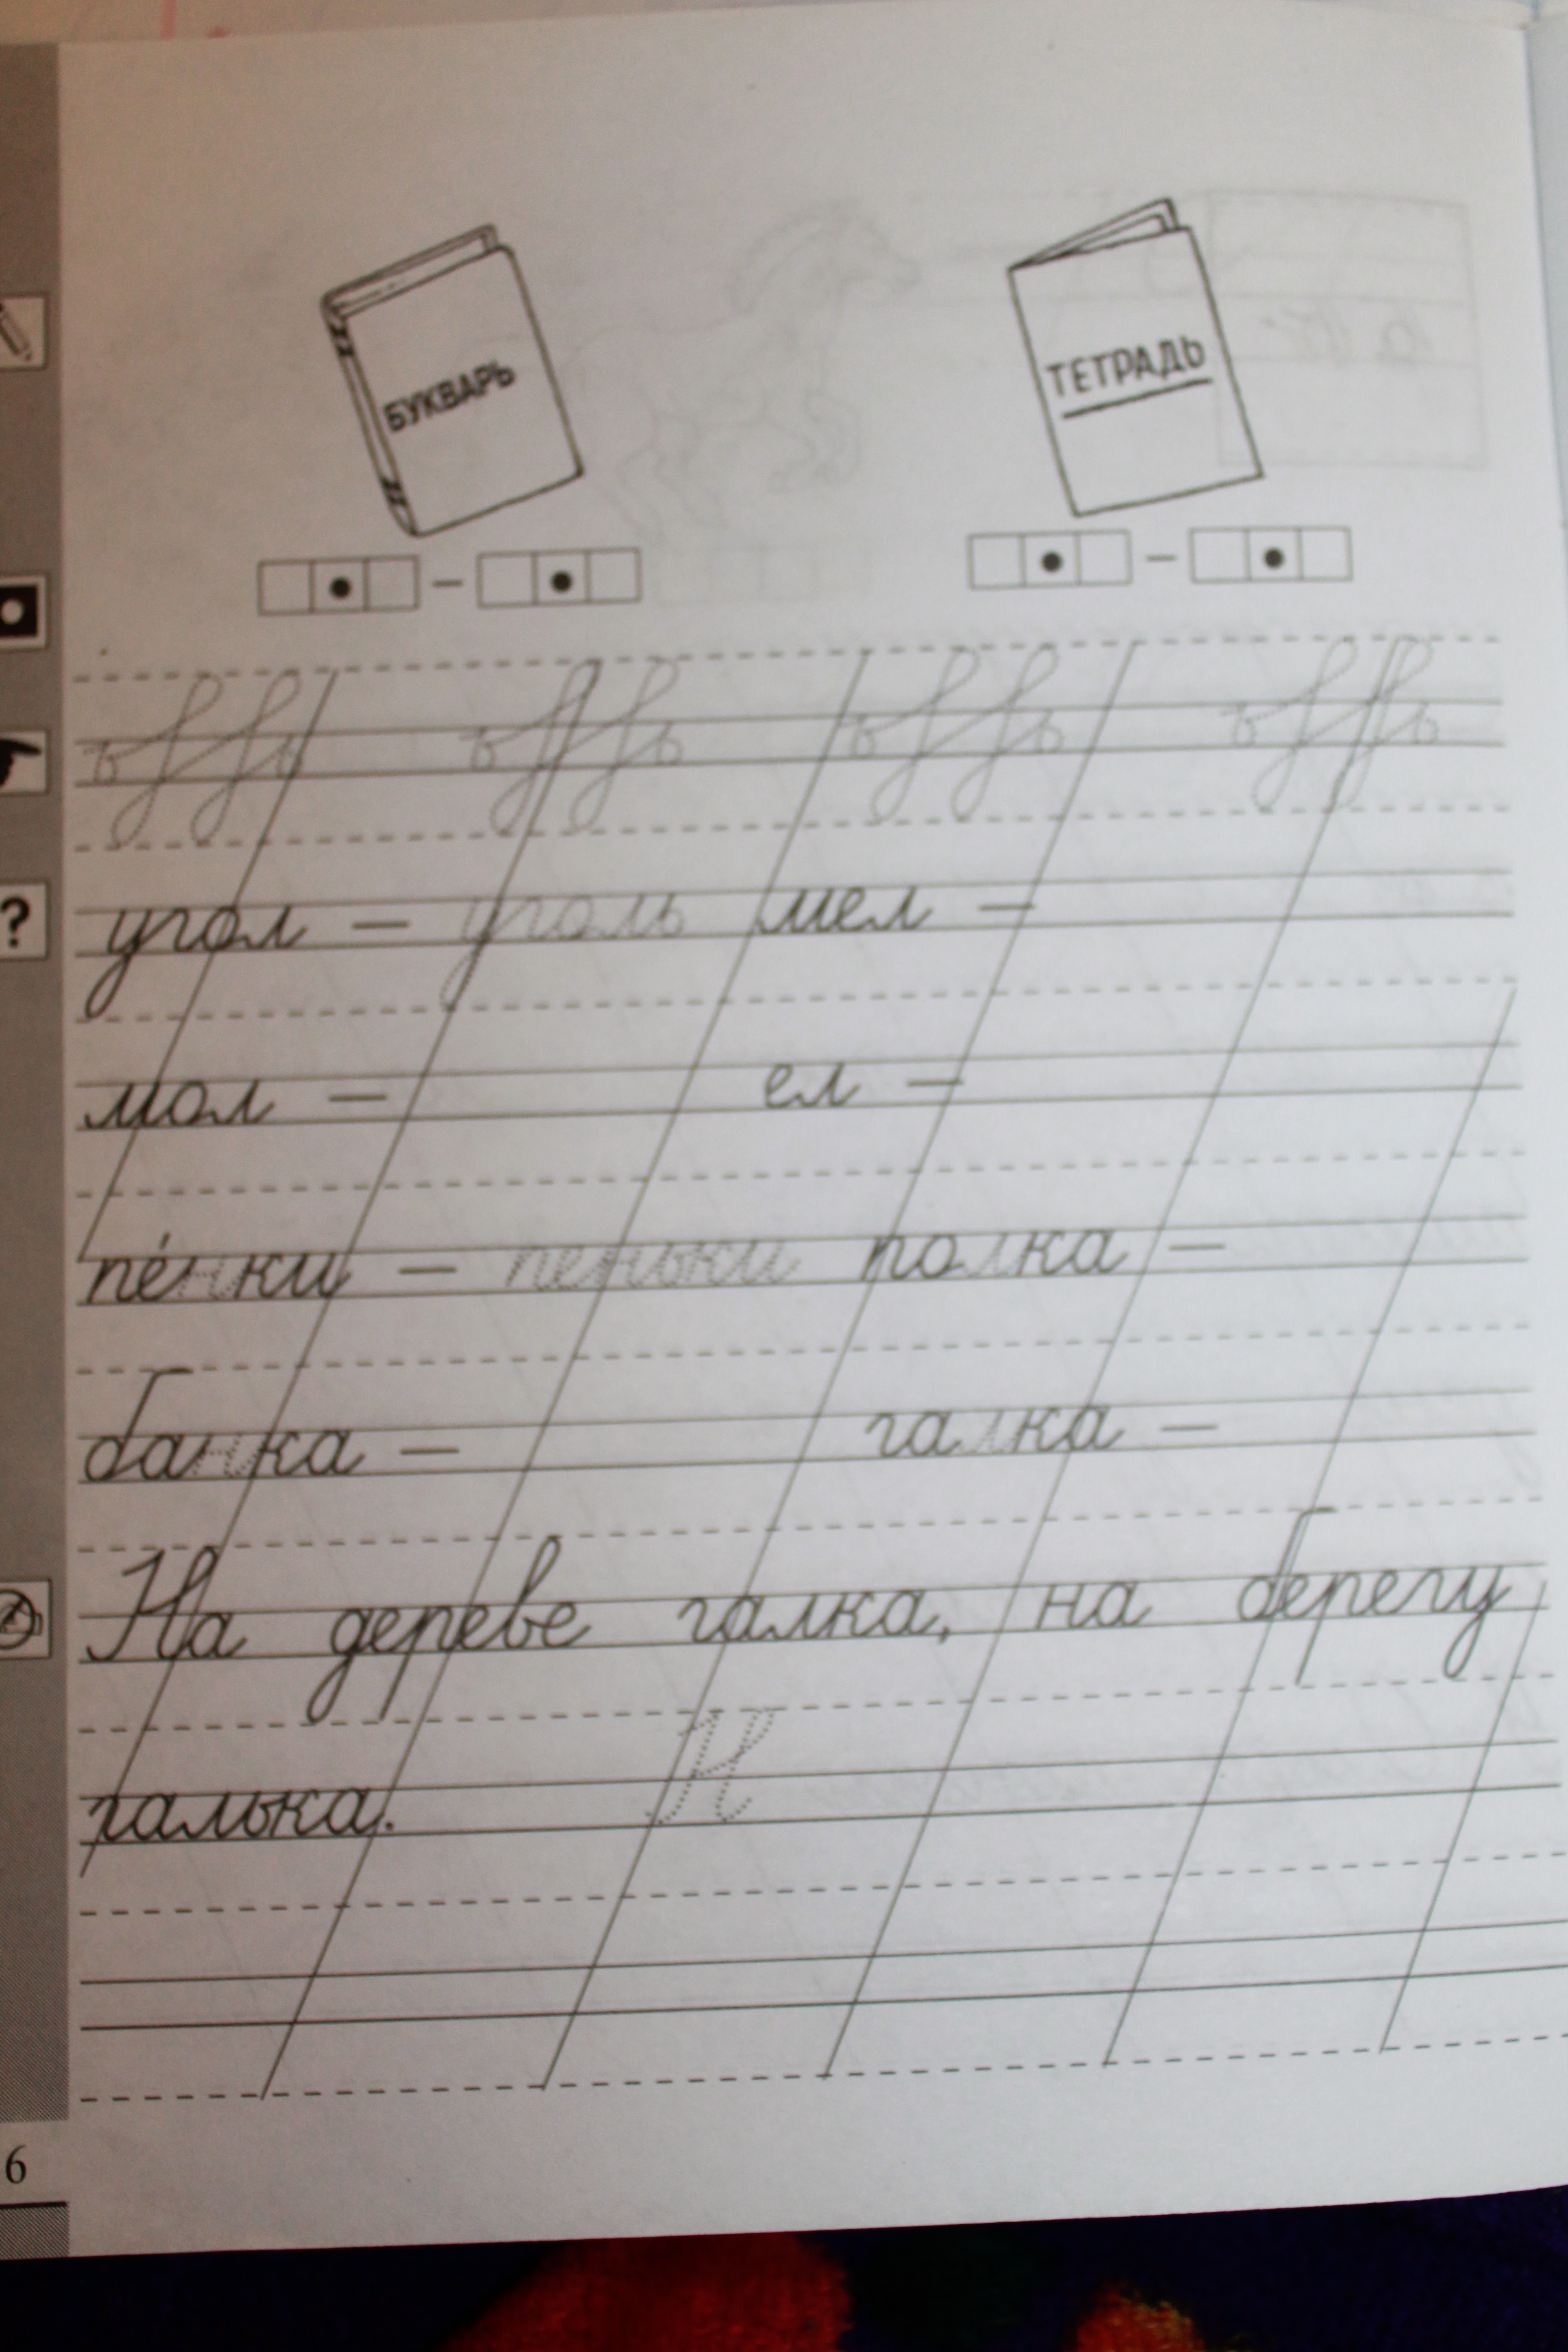 БУКВАРЬ
ТЕТРАДЬ
?
угол — уголь мел —
мол — ел —
пе́нки — пеньки полка —
банка — галка —
На дереве галка, на берегу
галька. Н
6